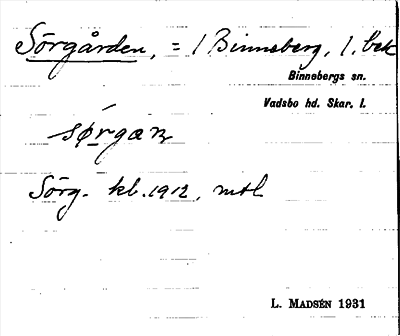 Sörgården, = 1 Binneberg, 1. bek
Binnebergs sn.
Vadsbo hd. Skar. l.
sǿrgaɳ
Sörg. kb. 1912, mtl
L. MADSÉN 1931